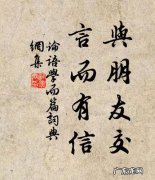 與朋友交
言而有信
論語學而篇詞典
網集